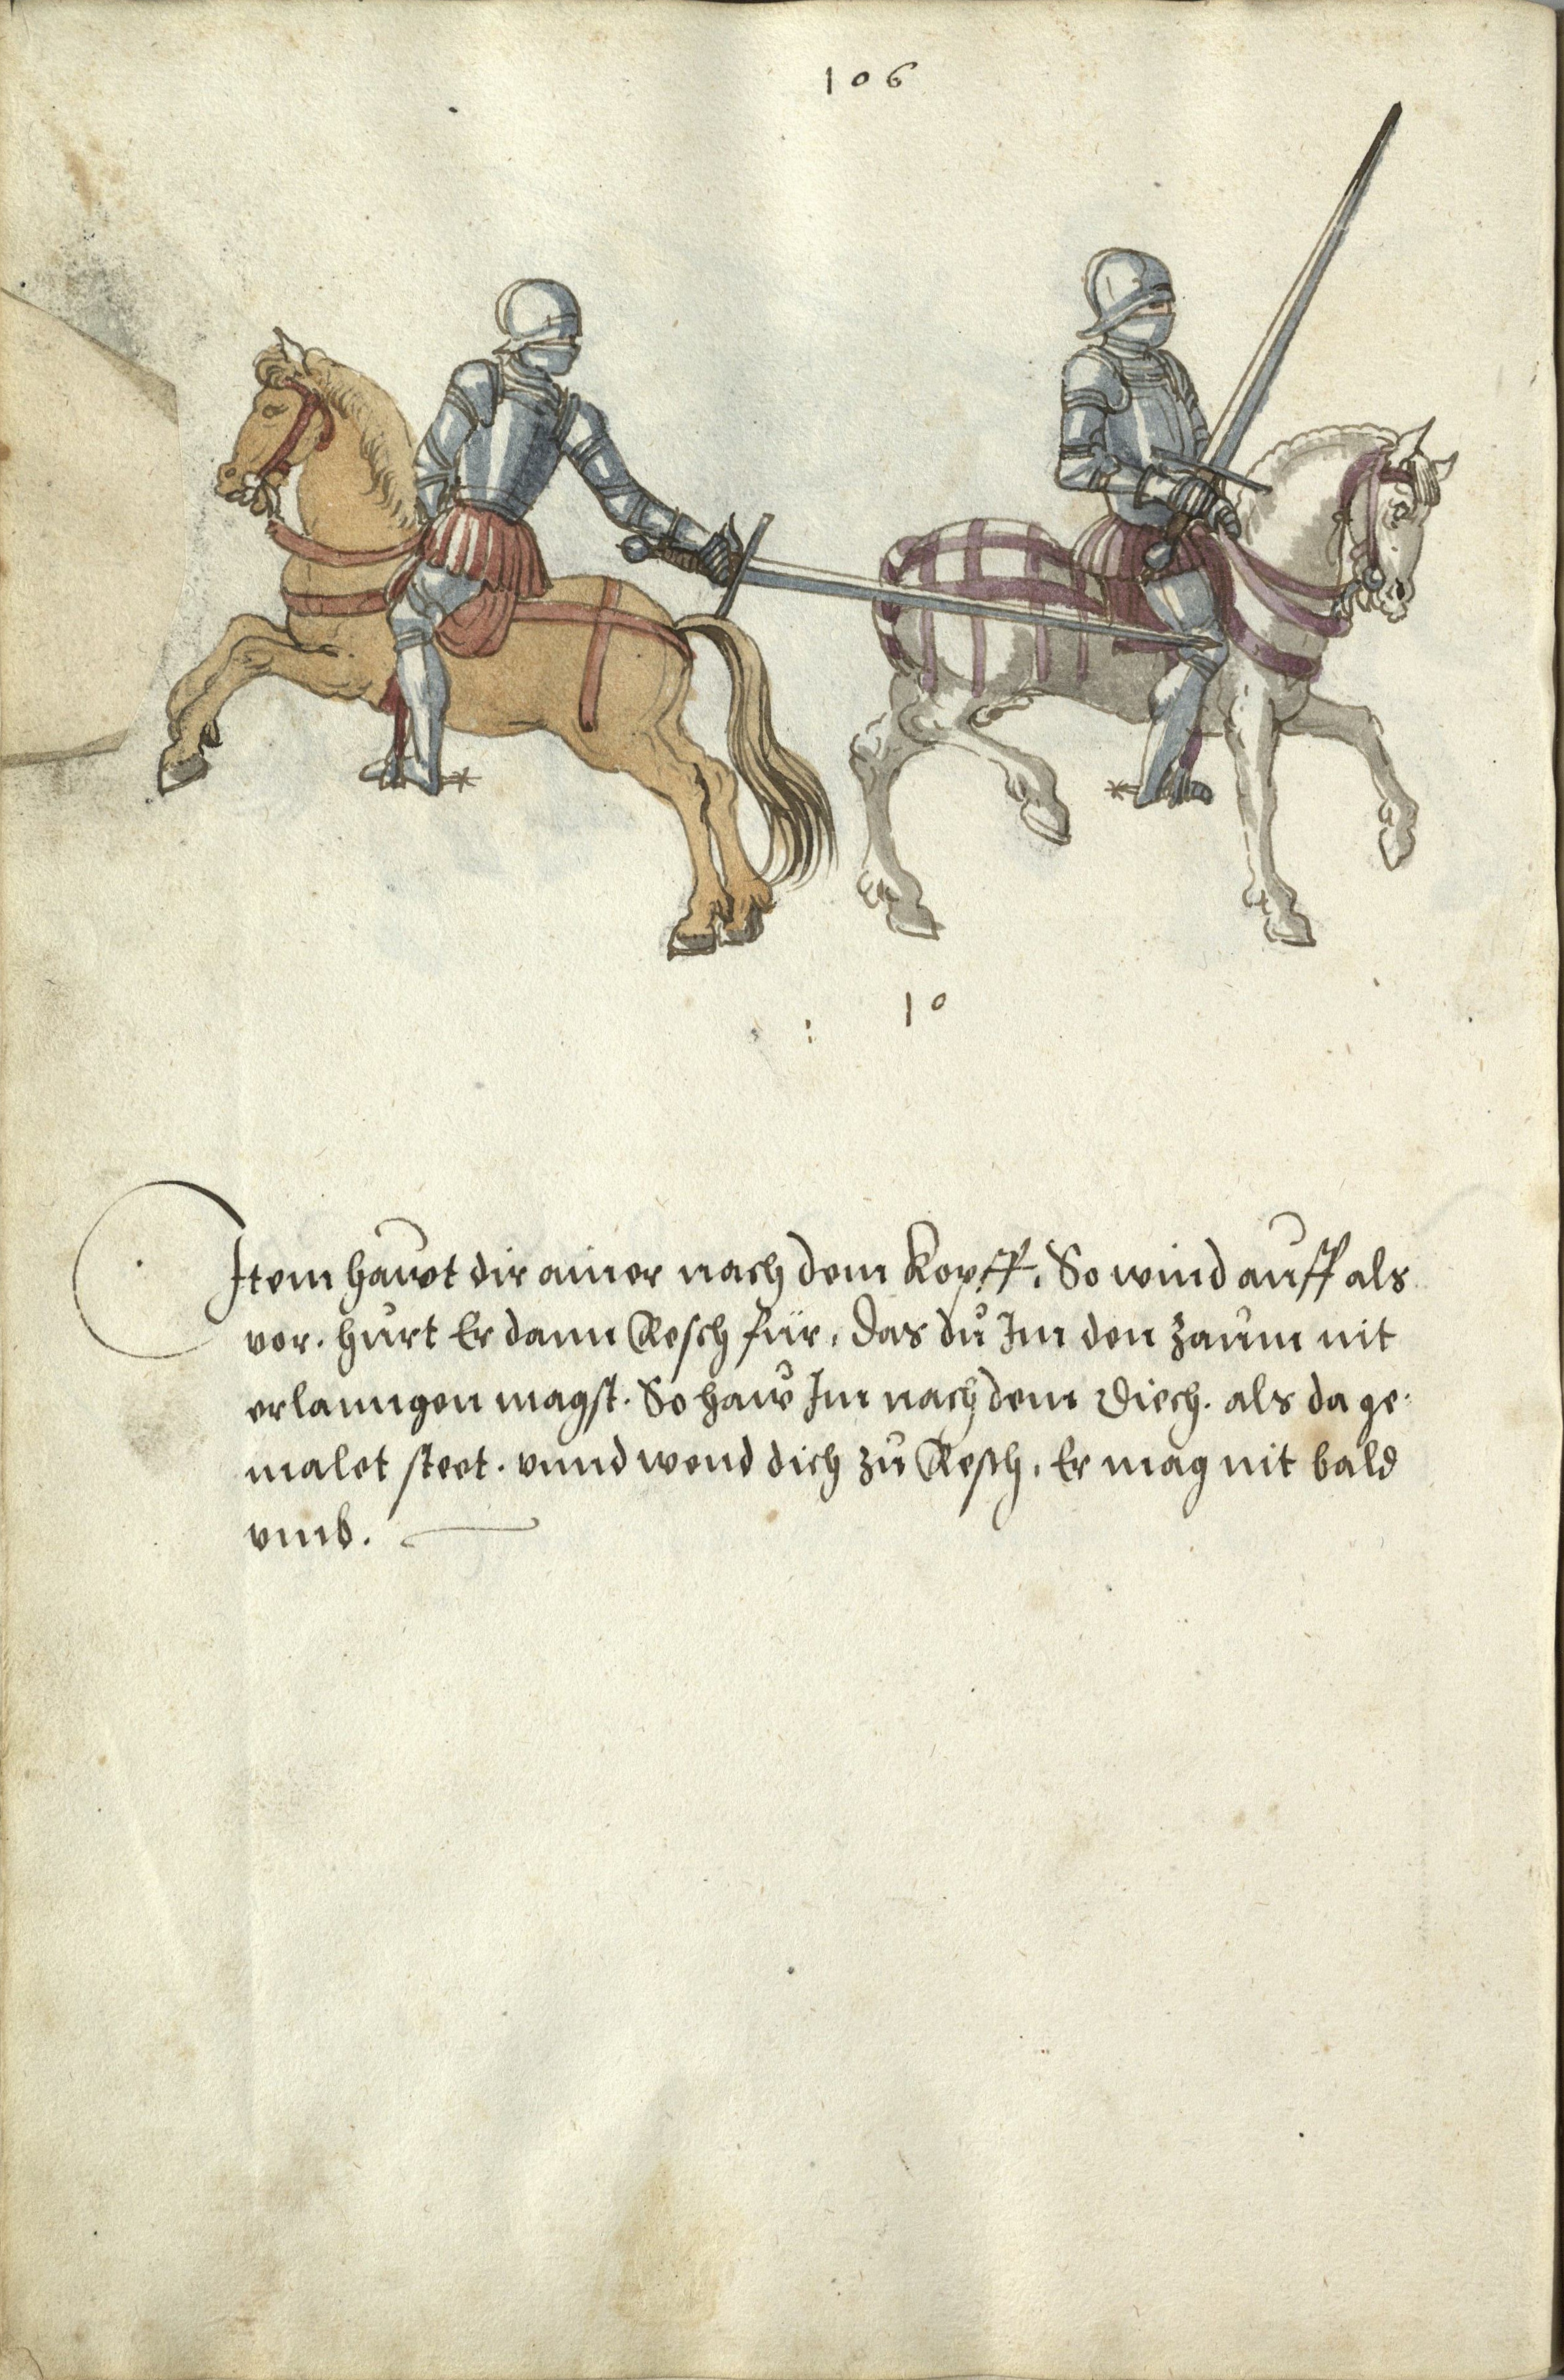 106
10
Item hawt dir ainer nach dem Kopff. So wind auff als
vor. hurt Er dann Resch für. das dů Im den zaum nit
erlanngen magst. So haw Im nach dem diech. als da ge-
malet steet. vnnd wend dich zů Resch. Er mag nit bald
vmb.